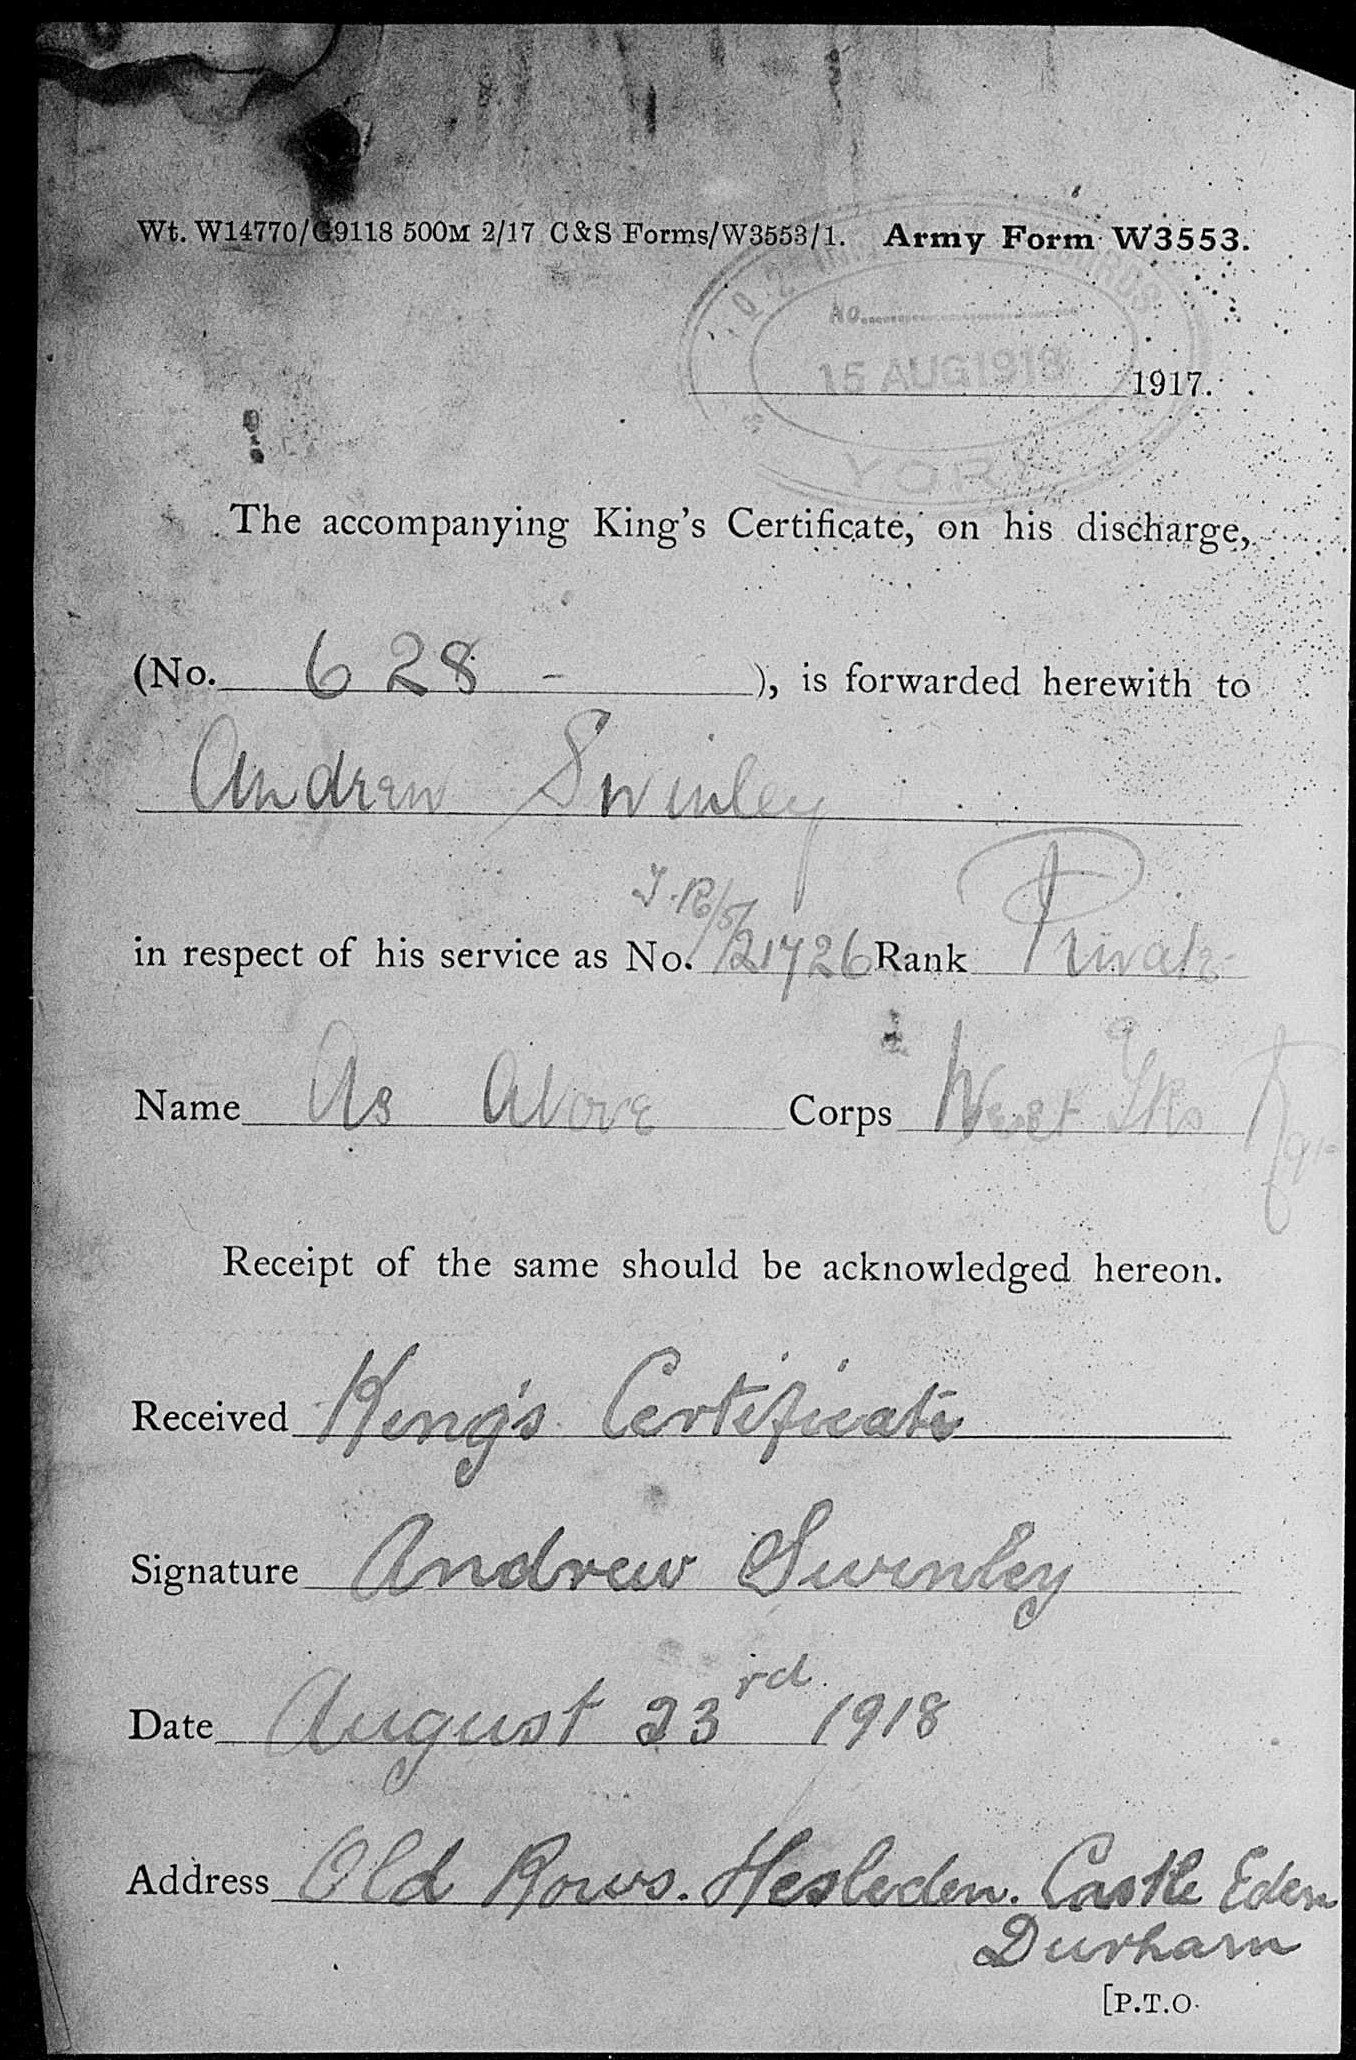 Wt. W14770/G9118 500M 2/17 C&S Forms/W3553/1. Army Form W3553.
No.
15 AUG 1918
1917.
YORK
The accompanying King's Certificate, on his discharge,
(No. 628 - ), is forwarded herewith to
Andrew Swinley
T.R/5/
in respect of his service as No. 21726 Rank Private
Name As Above Corps West Yks
Receipt of the same should be acknowledged hereon.
Received King's Certificate
Signature Andrew Swinley
Date August 23rd 1918
Address Old Rows. Hesleden. Castle Eden
Durham
[P.T.O.